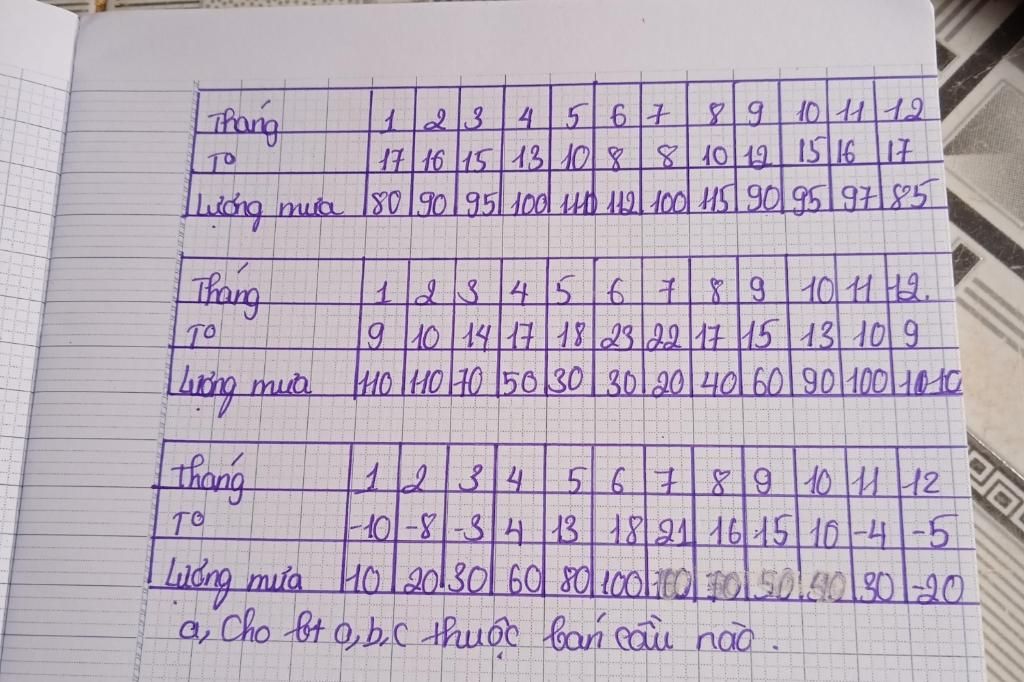 Tháng 1 2 3 4 5 6 7 8 9 10 11 12
T⁰ 17 16 15 13 10 8 8 10 12 15 16 17
Lượng mưa 80 90 95 100 110 112 100 115 90 95 97 85
Tháng 1 2 3 4 5 6 7 8 9 10 11 12
T⁰ 9 10 14 17 18 23 22 17 15 13 10 9
Lượng mưa 110 110 70 50 30 30 20 40 60 90 100
Tháng 1 2 3 4 5 6 7 8 9 10 11 12
T⁰ -10 -8 -3 4 13 18 21 16 15 10 -4 -5
Lượng mưa 10 20 30 60 80 100 100 50 30 -20
a, Cho bt a,b,c thuộc bán cầu nào.